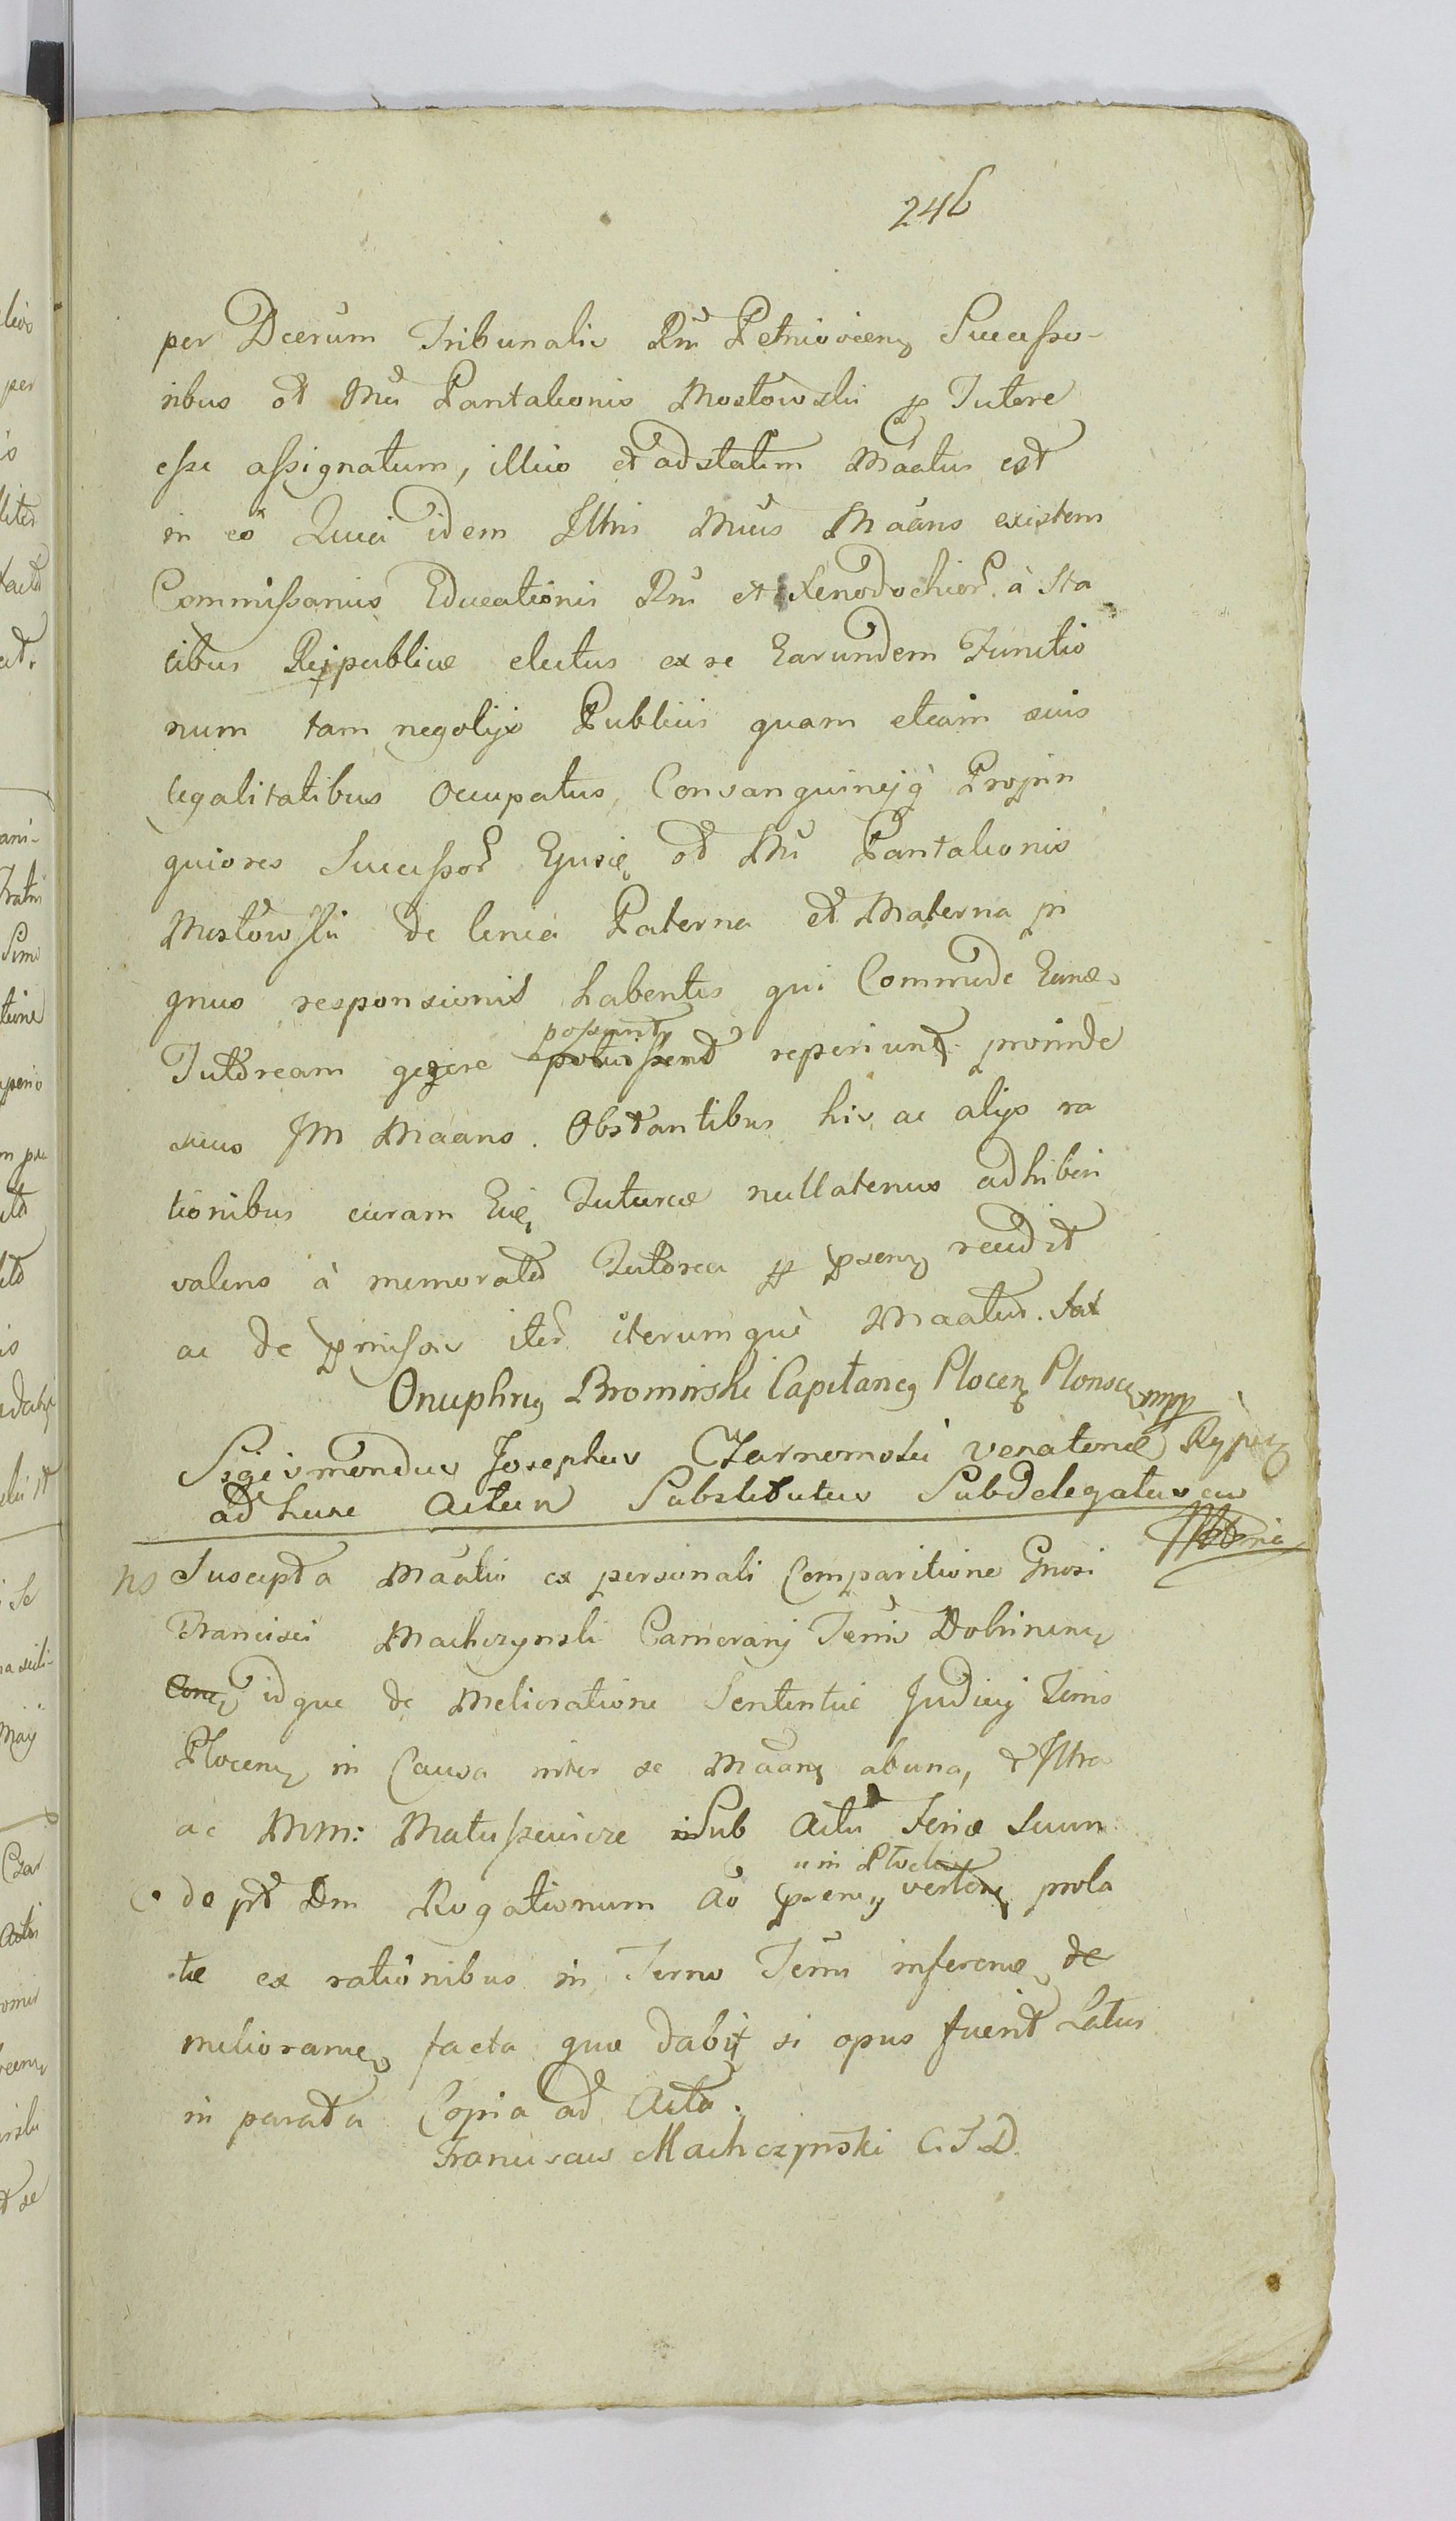 246
per Dcerum Tribunalis Rni Petricovien Successo-
ribus ol Mci Pantaleonis Mostowski p Tutore
esse assignatum, illico et adstatim Maatus est
in eo Quia idem Illris Mcus Maans existens
Commissarius Educationis Rni et Xenodochior à Sta
tibus Reipublicæ electus ex re Earundem Functio
num tam negotijs Publicis quam etiam suis
legalitatibus occupatus, Consanguineiq Propin
quiores Successor Ejusd ol Mci Pantaleonis
Mostowski de linea Paterna et Materna pi
gnus responsionis habentes qui Commode Eand
Tutoream gerere possunt potuissent reperiunt proinde
suus IM Maans. Obstantibus his ac alijs ra
tionibus curam Ejusd Tutoreæ nullatenus adhiberi
valens à memorata Tutorea p psens recedit
ac de pmissis iter iterumque Maatur. sat
Onuphrius Bromirski Capitaneus Plocen Plonscen mpp
Sigismundus Josephus Czarnomski venatoriæ Rypin
ad hunc Actum Substitutus Subdelegatus
ns Suscepta Maatio ex personali Comparitione Gnosi
Francisci Machczynski Camerarij Terris Dobrinen
idque de Melioratione Sententiæ Judicij Terris
Plocen in Causa inter se Maan ab una, & Illra
ac Mm: Matuszewicze Sub Actu Feriæ Secun
dæ pt Dm Rogationum Ao psen verten in Plock prola
tæ ex rationibus in Termo Terri inferen de
melioran facta quæ dabit si opus fuerit Latius
in parata Copia ad Acta.
Franciscus Machczynski C.T.D.